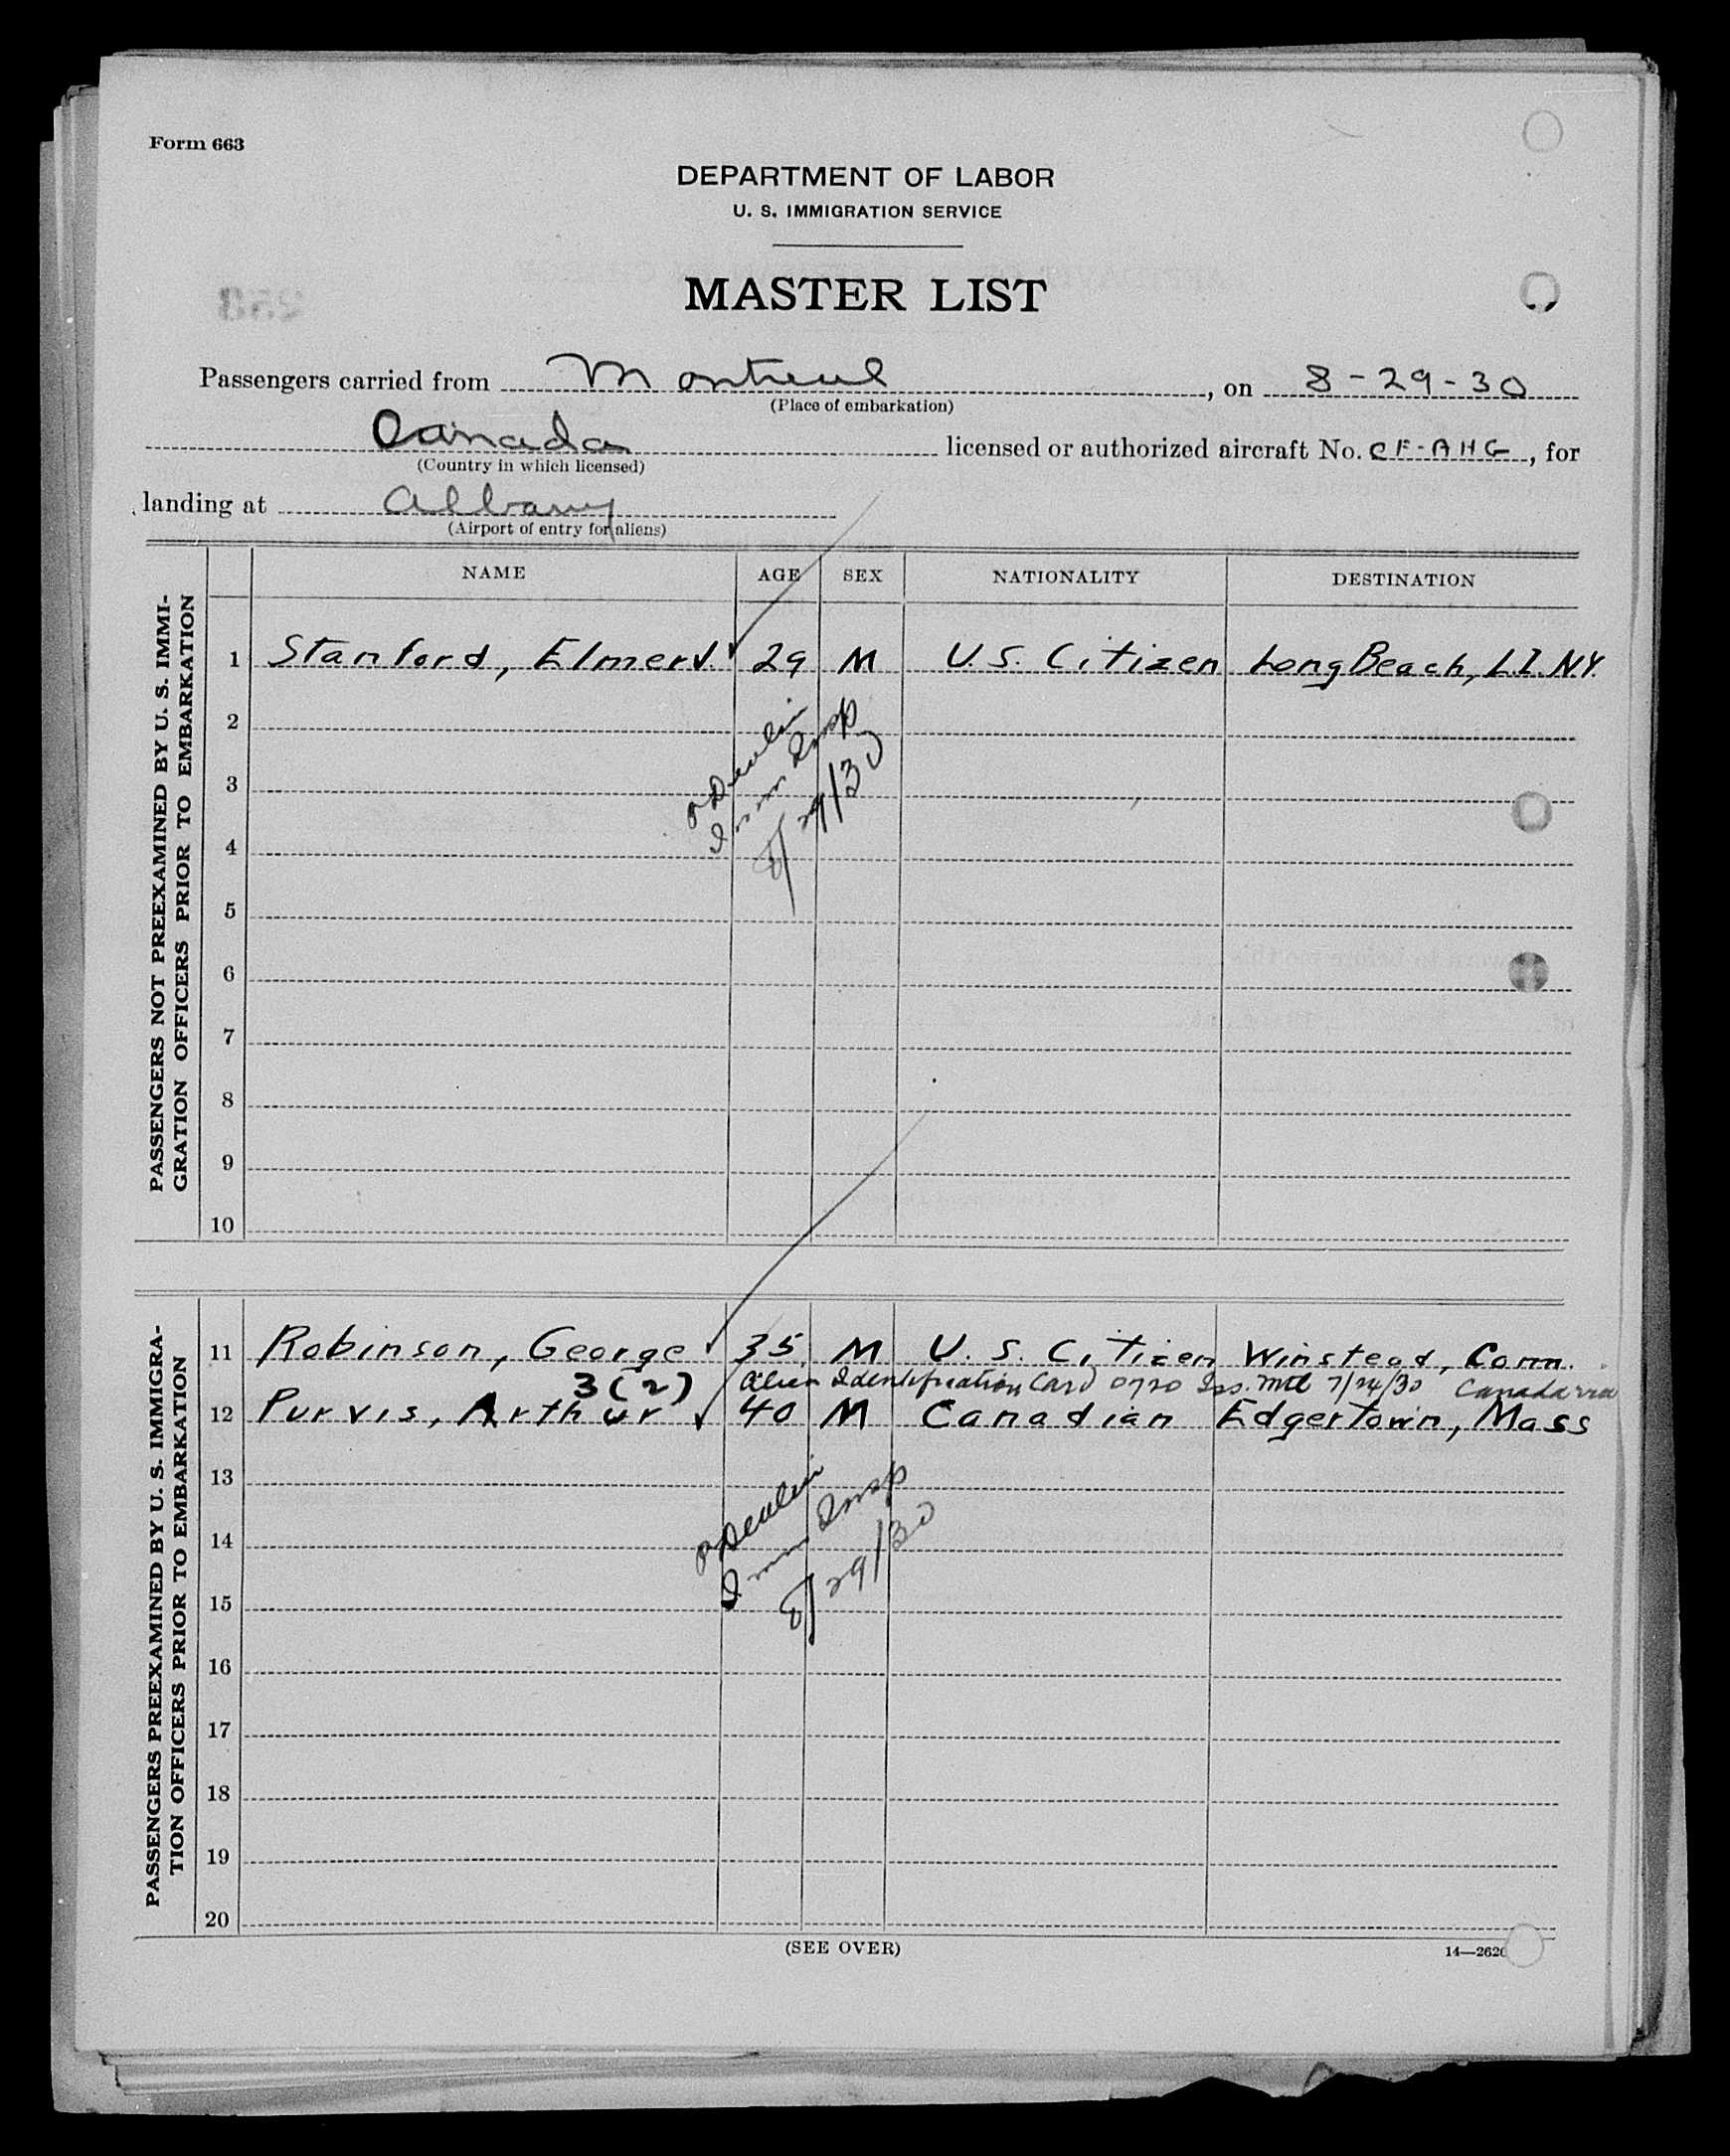 Form 663
DEPARTMENT OF LABOR
U. S. IMMIGRATION SERVICE
MASTER LIST
Passengers carried from Montreal, on 8-29-30
(Place of embarkation)
Canada licensed or authorized aircraft No. CF-AHG, for
(Country in which licensed)
landing at Albany
(Airport of entry for aliens)
NAME AGE SEX NATIONALITY DESTINATION
PASSENGERS NOT PREEXAMINED BY U. S. IMMI-
GRATION OFFICERS PRIOR TO EMBARKATION
1 Stanford, Elmer J. 29 M U.S. Citizen Long Beach, L.I. N.Y.
2
3
4
Devlin
Imm Insp
8/29/30
5
6
7
8
9
10
PASSENGERS PREEXAMINED BY U. S. IMMIGRA-
TION OFFICERS PRIOR TO EMBARKATION
11 Robinson, George 35 M U. S. Citizen Winstead, Conn.
3(2) Alien Identification Card 0720 Iss. Mtl 7/24/30 Canada via
12 Purvis, Arthur 40 M Canadian Edgertown, Mass
13
14
15
Devlin
Imm Insp
8/29/30
16
17
18
19
20
(SEE OVER)